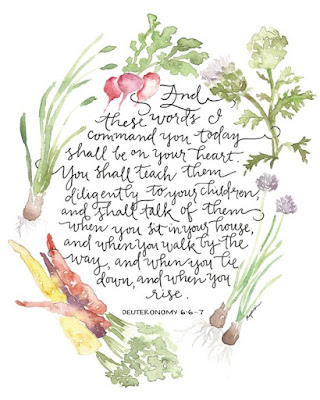 And
these words I
command you today
shall be on your heart.
You shall teach them
diligently to your children,
and shall talk of them
when you sit in your house,
and when you walk by the
way, and when you lie
down, and when you
rise.
DEUTERONOMY 6:6-7